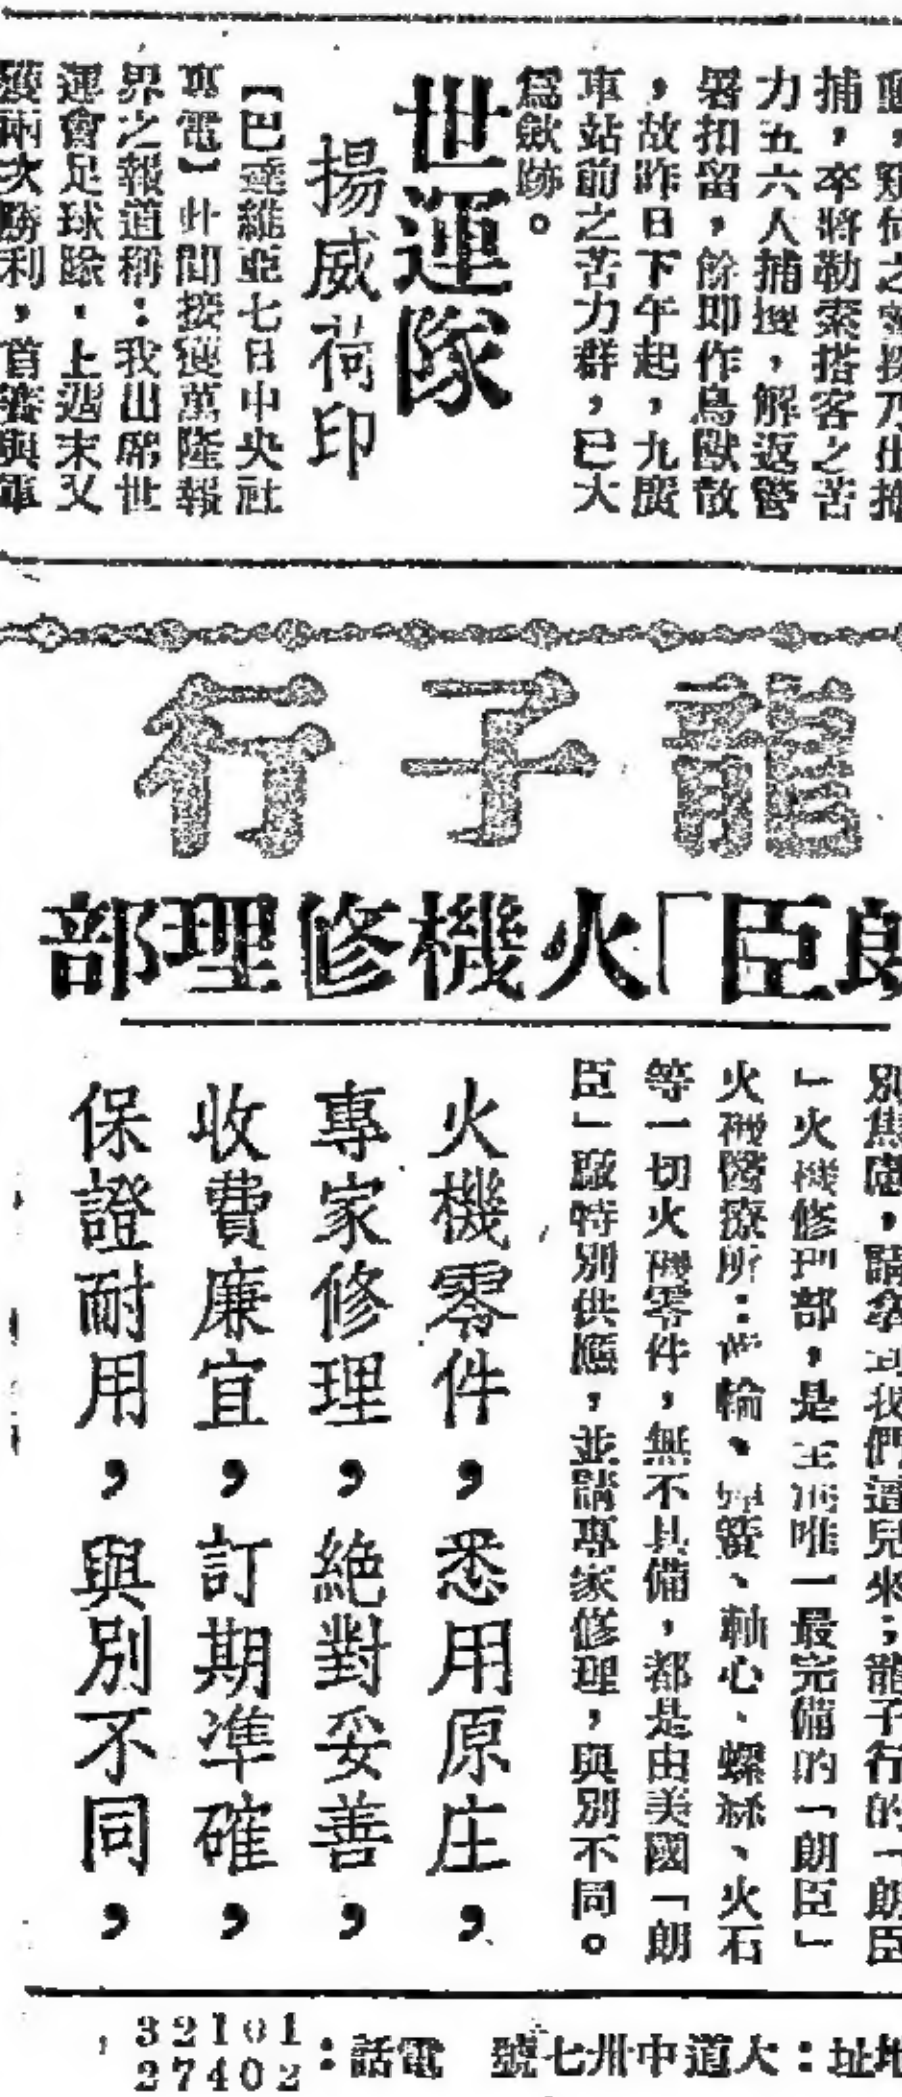 捕，卒將勒索搭客之苦
力五六人捕獲，解返警
署扣留，餘即作鳥獸散
，故昨日下午起，九廣
車站前之苦力群，已大
爲斂跡。
世運隊
揚威荷印
【巴達維亞七日中央社
專電】此間接獲萬隆報
界之報道稱：我出席世
運會足球隊，上週末又
獲兩次勝利，首賽與軍
龍子行
朗臣「火機修理部
別焦慮，請拿到我們這兒來；龍子行的「朗臣
」火機修理部，是全港唯一最完備的「朗臣」
火機醫療所：齒輪、彈簧、軸心、螺絲、火石
等一切火機零件，無不具備，都是由美國「朗
臣」廠特別供應，並請專家修理，與別不同。
火機零件，悉用原庄，
專家修理，絕對妥善，
收費廉宜，訂期準確，
保證耐用，與別不同，
地址：大道中卅七號　電話：32101
27402